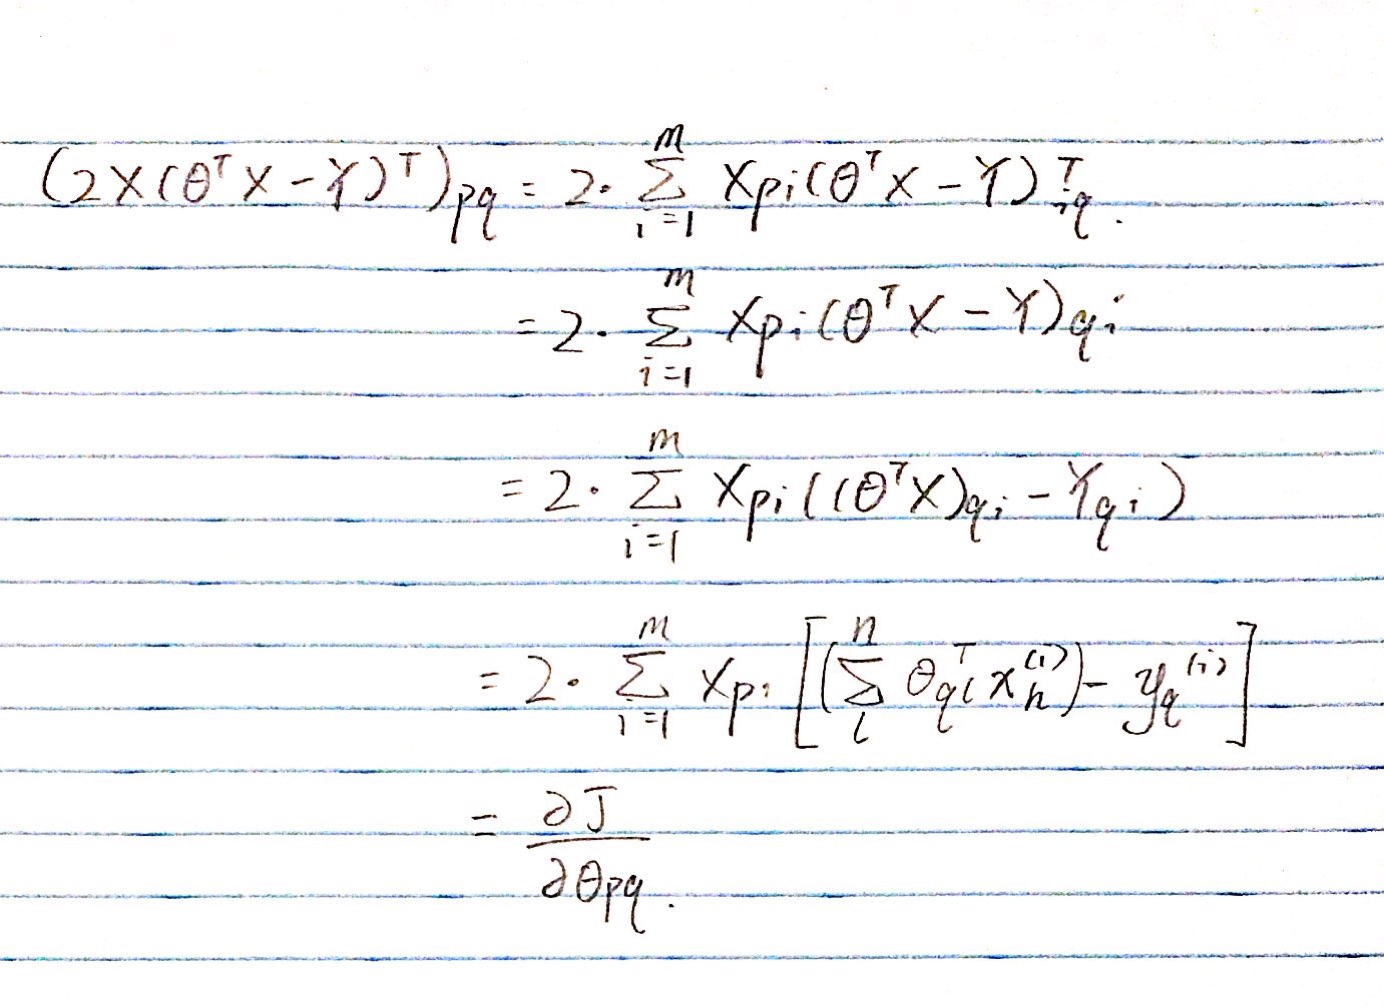 (2X(θᵀX − Y)ᵀ)pq = 2· Σ_{i=1}^{m} Xpi(θᵀX − Y)ᵀiq.
= 2· Σ_{i=1}^{m} Xpi(θᵀX − Y)qi
= 2· Σ_{i=1}^{m} Xpi((θᵀX)qi − Yqi)
= 2· Σ_{i=1}^{m} Xpi [(Σ_{l}^{n} θᵀql x_h^{(i)}) − y_q^{(i)}]
= ∂J / ∂θpq.